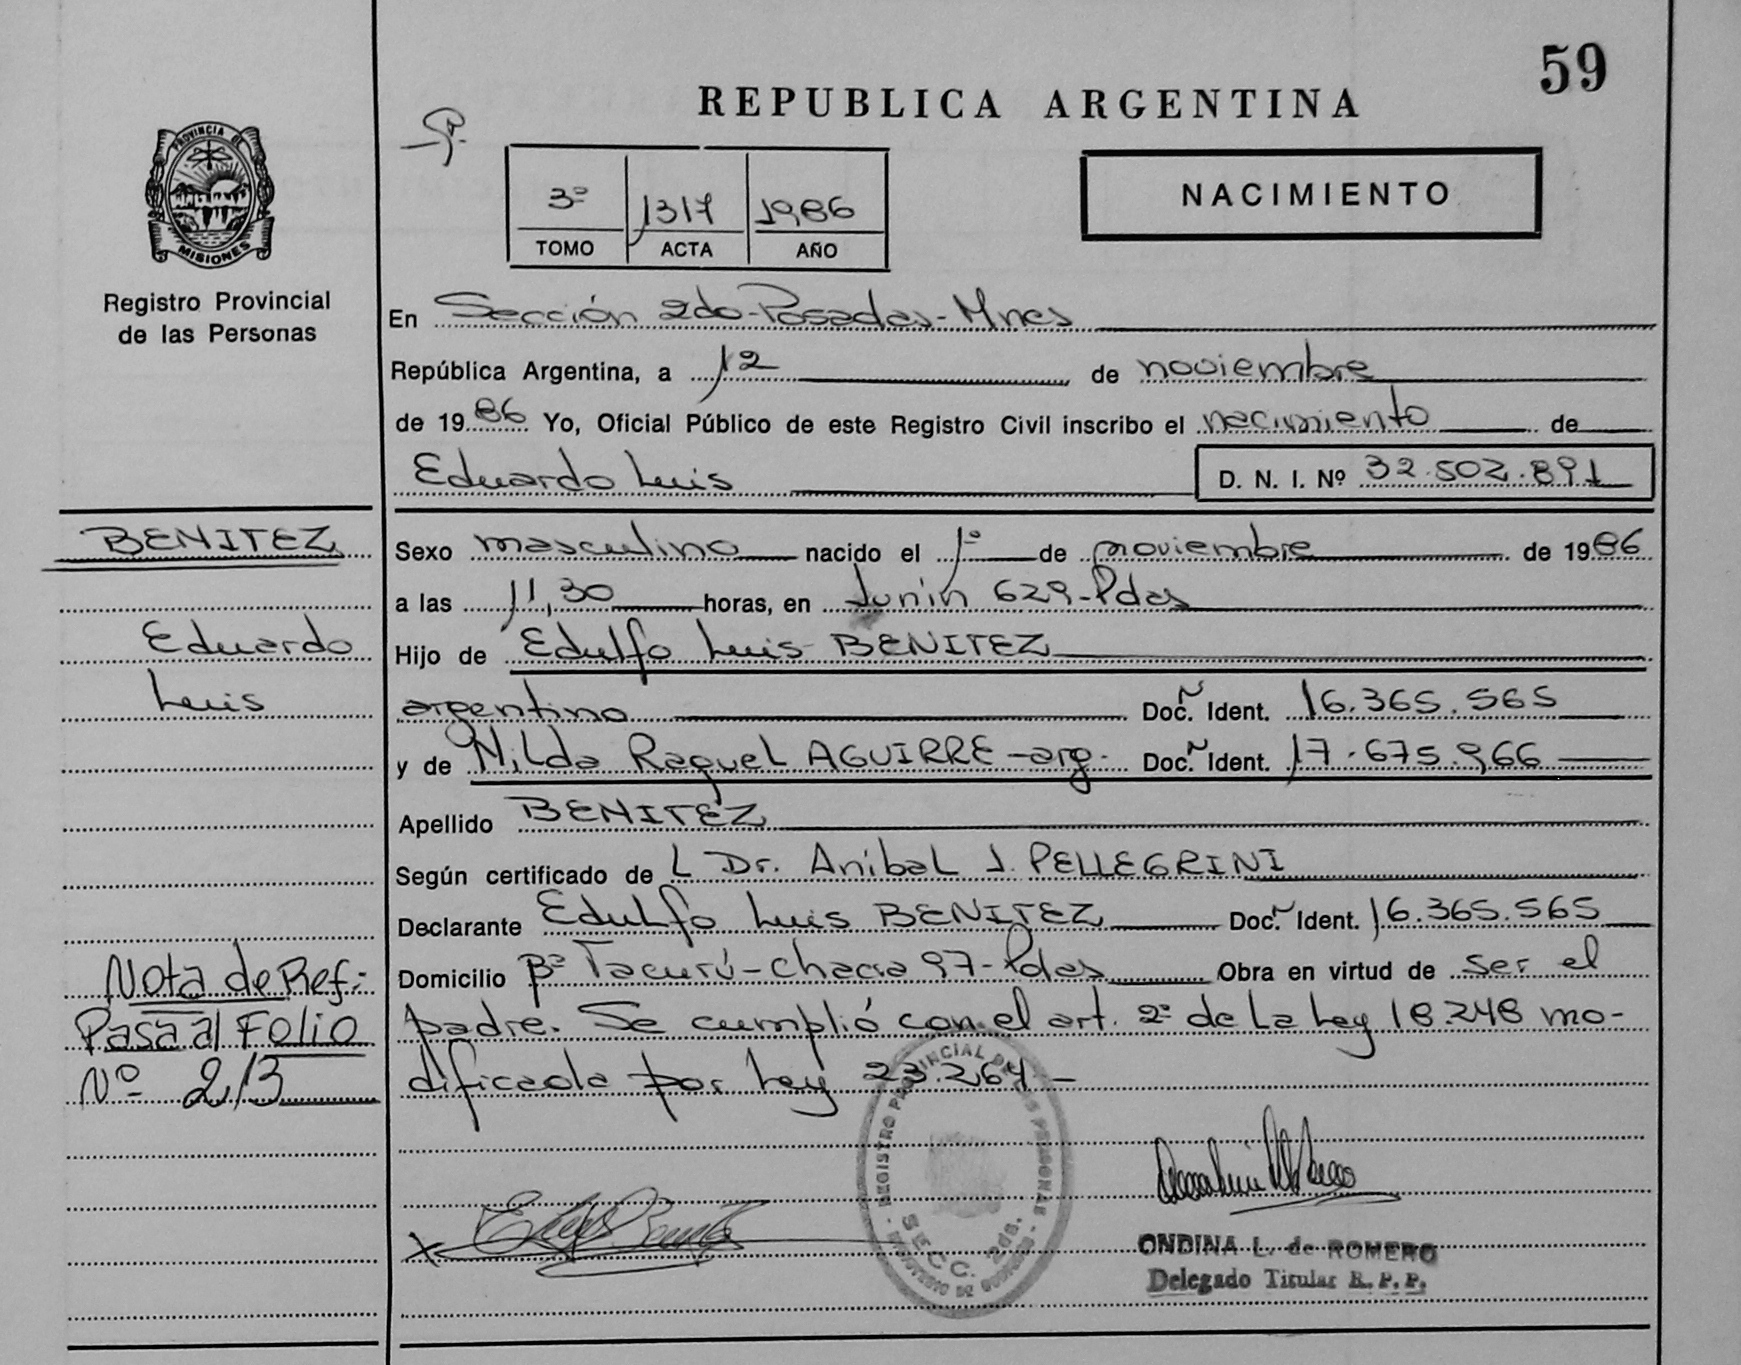 59
REPUBLICA ARGENTINA
PROVINCIA DE
MISIONES
Registro Provincial
de las Personas
3º 1317 1986
TOMO ACTA AÑO
NACIMIENTO
En Sección 2do-Posadas-Mnes
República Argentina, a 12 de noviembre
de 1986 Yo, Oficial Público de este Registro Civil inscribo el nacimiento de
Eduardo Luis D. N. I. Nº 32.502.891
BENITEZ
Eduardo
Luis
Sexo masculino nacido el 1º de noviembre de 1986
a las 11,30 horas, en Junín 629-Pdas
Hijo de Edulfo Luis BENITEZ
argentino Doc. N Ident. 16.365.565
y de Nilda Raquel AGUIRRE-arg. Doc. N Ident. 17.675.966
Apellido BENITEZ
Según certificado de L Dr. Aníbal J. PELLEGRINI
Declarante Edulfo Luis BENITEZ Doc. N Ident. 16.365.565
Domicilio Bº Tacurú-Chacra 97-Pdas Obra en virtud de ser el
padre. Se cumplió con el art. 2º de la Ley 18.248 mo-
dificada por Ley 23.264-
Nota de Ref:
Pasa al Folio
Nº 213
REGISTRO PROVINCIAL DE LAS PERSONAS
SECC. 2da.
ONDINA L. de ROMERO
Delegado Titular R. P. P.